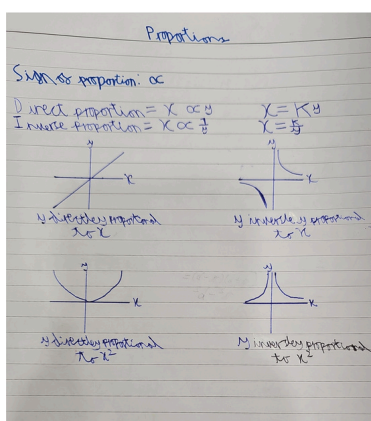 Proportions
Sign of proportion: ∝
Direct proportion = X ∝ y X = Ky
Inverse proportion = X ∝ 1/y X = K/y
y y
x x
y directley proportional y inversley proportional
to x to x
y y
x x
y directley proportional y inversley proportional
to x² to x²